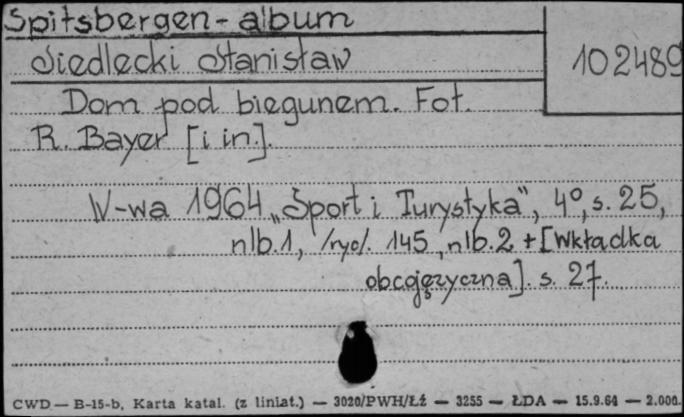 Spitsbergen - album
Siedlecki Stanisław
102489
Dom pod biegunem. Fot.
R. Bayer [i in.].
W-wa 1964 „Sport i Turystyka", 4º, s. 25,
nlb. 1, /ryc/. 145, nlb. 2 + [Wkładka
obcojęzyczna]. s. 27.
CWD — B-15-b, Karta katal. (z liniat.) — 3020/PWH/Łź — 3255 — ŁDA — 15.9.64 — 2.000.